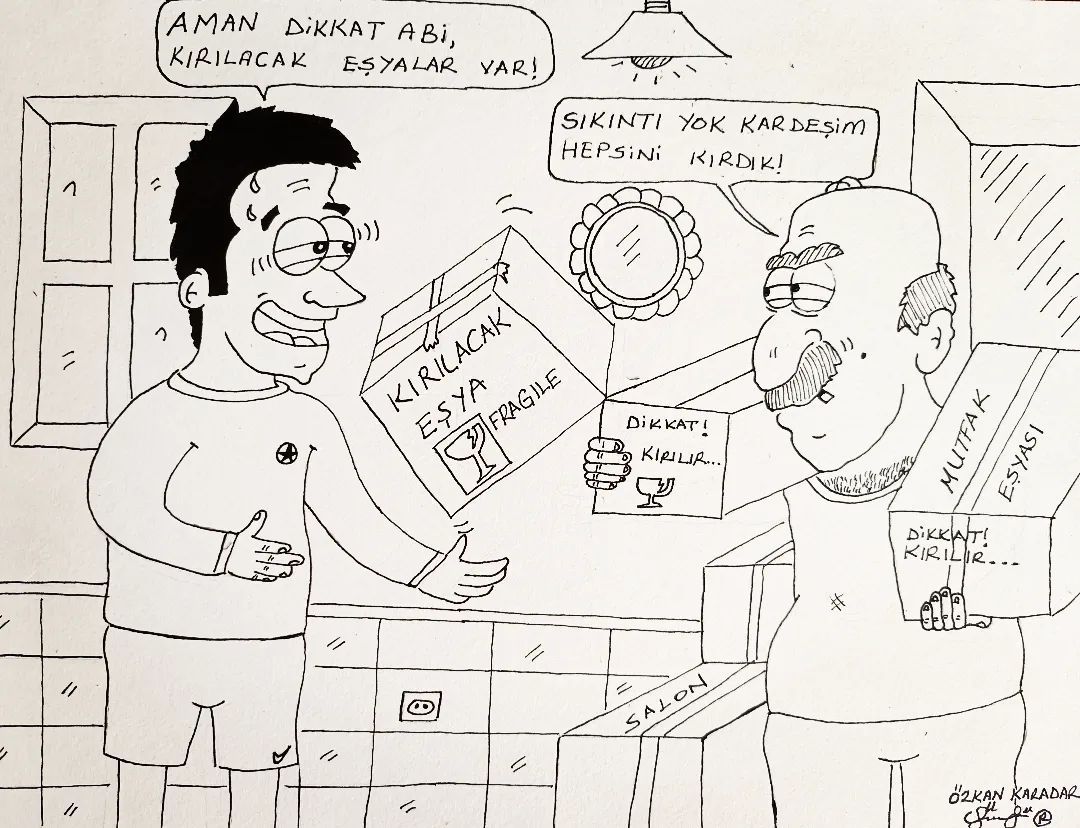 AMAN DİKKAT ABİ,
KIRILACAK EŞYALAR VAR!
SIKINTI YOK KARDEŞİM
HEPSİNİ KIRDIK!
KIRILACAK
EŞYA
FRAGILE
DİKKAT!
KIRILIR...
MUTFAK
EŞYASI
DİKKAT!
KIRILIR...
SALON
ÖZKAN KARADAR